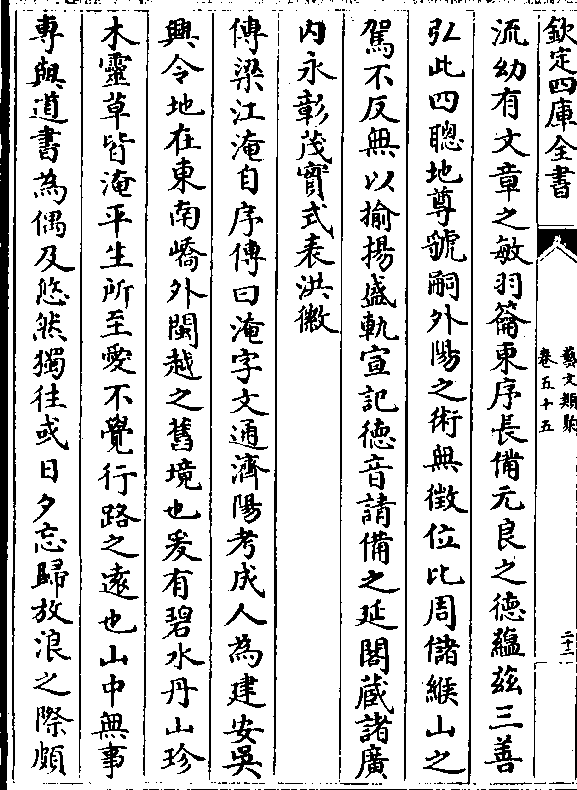 欽定四庫全書
藝文類聚
卷五十五
二十二
流幼有文章之敏羽籥東序長備元良之德蘊兹三善
弘此四聰地尊號嗣外陽之術無徵位比周儲緱山之
駕不反無以揄揚盛軌宣記德音請備之延閣藏諸廣
内永彰茂實式表洪徽
傳梁江淹自序傳曰淹字文通濟陽考成人為建安吳
興令地在東南嶠外閩越之舊境也爰有碧水丹山珍
木靈草皆淹平生所至愛不覺行路之遠也山中無事
專與道書為偶及悠然獨往或日夕忘歸放浪之際頗